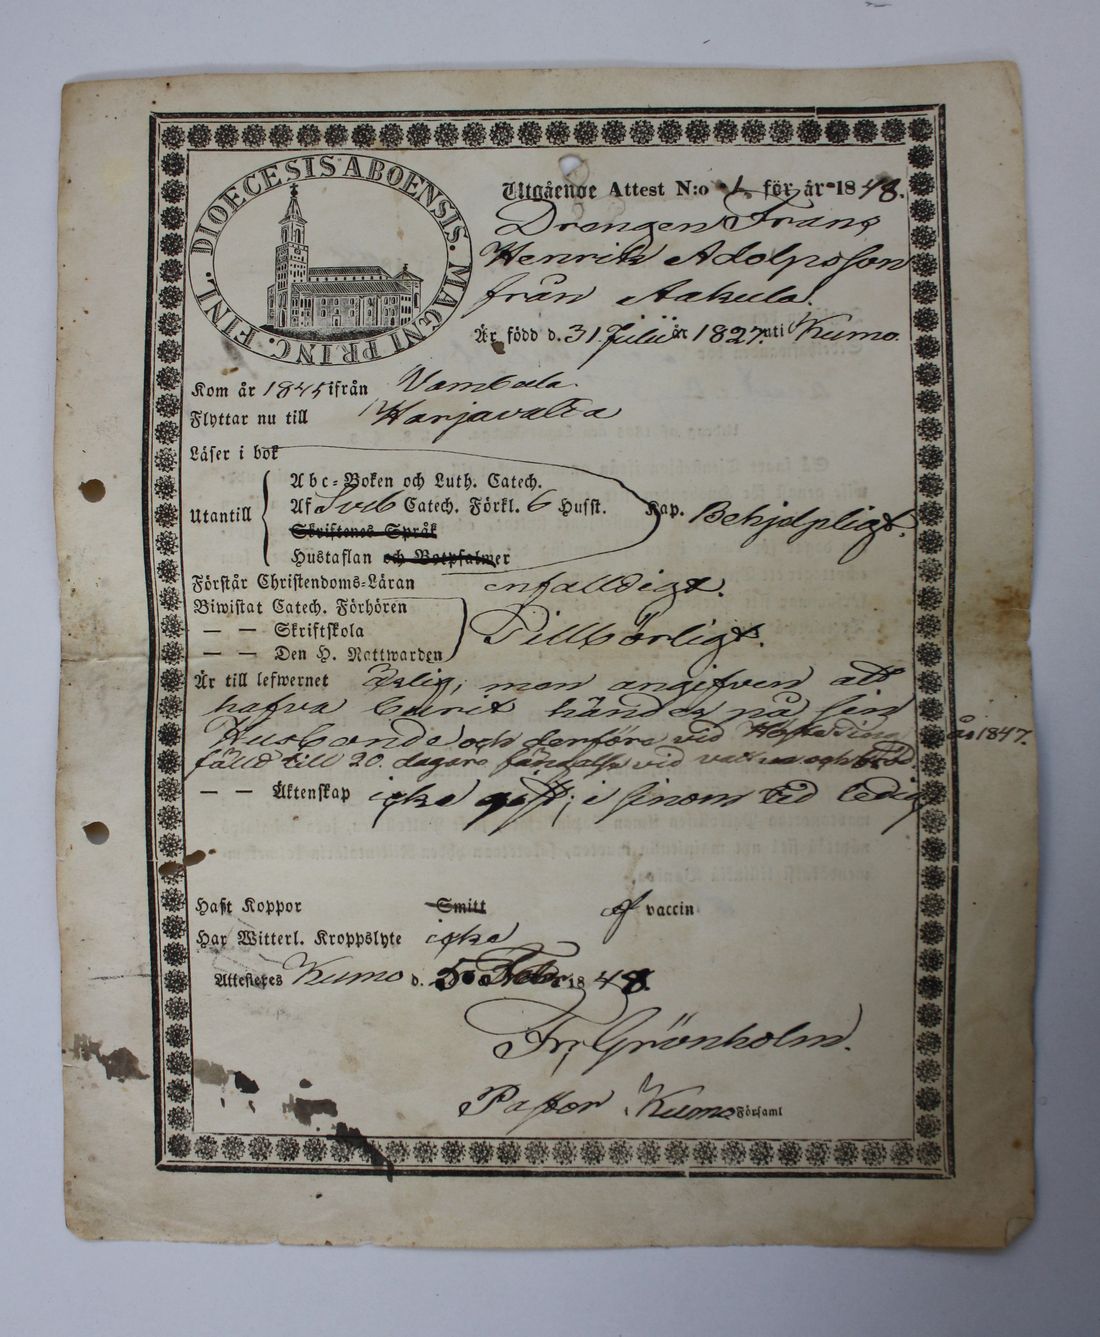 DIOECESIS ABOENSIS. MAGNI PRINC. FINL.
Utgående Attest N:o 1 för år 1848.
Drengen Frans
Henrik Adolpsson
från Aakula.
Är född d. 31 Julii år 1827. uti Kumo.
Kom år 1845 ifrån Vambula
Flyttar nu till Harjavalta
Läser i bok
Utantill
Abc-Boken och Luth. Catech.
Af Sveb Catech. Förkl. 6 Husst. Kap. Behjelpligt.
Skriftenes Språk
Hustaflan och Botpsalmer
Förstår Christendoms-Läran enfaldigt.
Biwistat Catech. Förhören
— — Skriftskola Tillbörligt.
— — Den H. Nattwarden
Är till lefwernet men angifven att
hafva burit händer på sin
Husbonde och derföre vid Hösteting år 1847.
fälld till 20. dagars fängelse vid vatten och bröd.
— — Äktenskap icke gift; i sinom tid ledig
Haft Koppor Smitt af vaccin
Har Witterl. Kroppslyte icke
Attesteres Kumo d. 5 Febr. 1848.
Fr. Grönholm.
Pastor i Kumo Församl